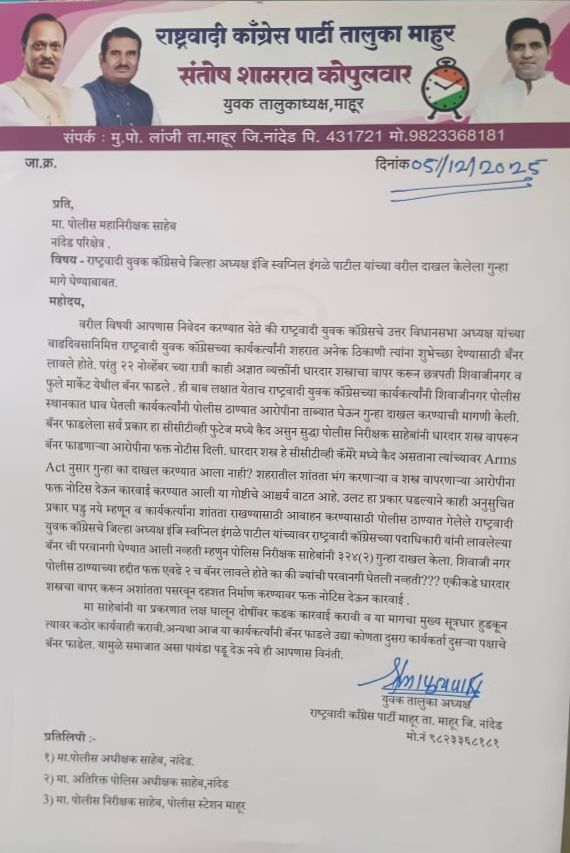 राष्ट्रवादी काँग्रेस पार्टी तालुका माहुर
संतोष शामराव कोपुलवार
युवक तालुकाध्यक्ष,माहूर
संपर्क : मु.पो. लांजी ता.माहूर जि.नांदेड पि. 431721 मो.9823368181
जा.क्र.
दिनांक 05/12/2025
प्रति,
मा. पोलीस महानिरीक्षक साहेब
नांदेड परिक्षेत्र .
विषय - राष्ट्रवादी युवक काँग्रेसचे जिल्हा अध्यक्ष इंजि स्वप्निल इंगळे पाटील यांच्या वरील दाखल केलेला गुन्हा
मागे घेण्याबाबत.
महोदय,
वरील विषयी आपणास निवेदन करण्यात येते की राष्ट्रवादी युवक काँग्रेसचे उत्तर विधानसभा अध्यक्ष यांच्या
वाढदिवसानिमित्त राष्ट्रवादी युवक काँग्रेसच्या कार्यकर्त्यांनी शहरात अनेक ठिकाणी त्यांना शुभेच्छा देण्यासाठी बॅनर
लावले होते. परंतु २२ नोव्हेंबर च्या रात्री काही अज्ञात व्यक्तींनी धारदार शस्त्राचा वापर करून छत्रपती शिवाजीनगर व
फुले मार्केट येथील बॅनर फाडले . ही बाब लक्षात येताच राष्ट्रवादी युवक काँग्रेसच्या कार्यकर्त्यांनी शिवाजीनगर पोलीस
स्थानकात धाव घेतली कार्यकर्त्यांनी पोलीस ठाण्यात आरोपीना ताब्यात घेऊन गुन्हा दाखल करण्याची मागणी केली.
बॅनर फाडलेला सर्व प्रकार हा सीसीटीव्ही फुटेज मध्ये कैद असुन सुद्धा पोलीस निरीक्षक साहेबांनी धारदार शस्र वापरून
बॅनर फाडणाऱ्या आरोपीना फक्त नोटीस दिली. धारदार शस्त्र हे सीसीटीव्ही कॅमेरे मध्ये कैद असताना त्यांच्यावर Arms
Act नुसार गुन्हा का दाखल करण्यात आला नाही? शहरातील शांतता भंग करणाऱ्या व शस्त्र वापरणाऱ्या आरोपीना
फक्त नोटिस देऊन कारवाई करण्यात आली या गोष्टीचे आश्चर्य वाटत आहे. उलट हा प्रकार घडल्याने काही अनुसुचित
प्रकार घडु नये म्हणून व कार्यकर्त्यांना शांतता राखण्यासाठी आवाहन करण्यासाठी पोलीस ठाण्यात गेलेले राष्ट्रवादी
युवक काँग्रेसचे जिल्हा अध्यक्ष इंजि स्वप्निल इंगळे पाटील यांच्यावर राष्ट्रवादी काँग्रेसच्या पदाधिकारी यांनी लावलेल्या
बॅनर ची परवानगी घेण्यात आली नव्हती म्हणुन पोलिस निरीक्षक साहेबांनी ३२४(२) गुन्हा दाखल केला. शिवाजी नगर
पोलीस ठाण्याच्या हद्दीत फक्त एवढे २ च बॅनर लावले होते का की ज्यांची परवानगी घेतली नव्हती??? एकीकडे धारदार
शस्त्रचा वापर करून अशांतता पसरवून दहशत निर्माण करण्यावर फक्त नोटीस देऊन कारवाई .
मा साहेबांनी या प्रकरणात लक्ष घालून दोषींवर कडक कारवाई करावी व या मागचा मुख्य सूत्रधार हुडकून
त्यावर कठोर कार्यवाही करावी.अन्यथा आज या कार्यकर्त्यांनी बॅनर फाडले उद्या कोणता दुसरा कार्यकर्ता दुसऱ्या पक्षाचे
बॅनर फाडेल. यामुळे समाजात असा पायंडा पडू देऊ नये ही आपणास विनंती.
युवक तालुका अध्यक्ष
राष्ट्रवादी काँग्रेस पार्टी माहूर ता. माहूर जि. नांदेड
मो.नं ९८२३३६८१८१
प्रतिलिपी :-
१) मा.पोलीस अधीक्षक साहेब, नांदेड.
२) मा. अतिरिक्त पोलिस अधीक्षक साहेब,नांदेड
3) मा. पोलीस निरीक्षक साहेब, पोलीस स्टेशन माहूर